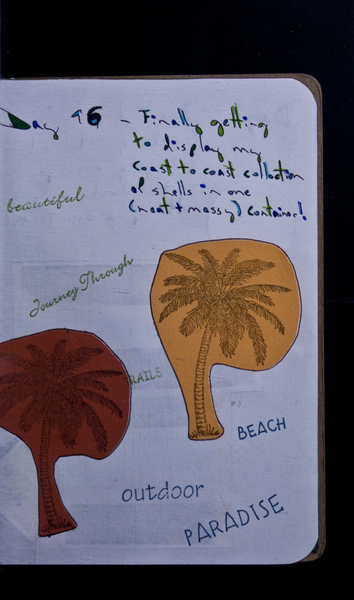 Day 96 - Finally getting
to display my
coast to coast collection
of shells in one
(neat + messy) container!
beautiful
Journey Through
RAILS
BEACH
outdoor
PARADISE